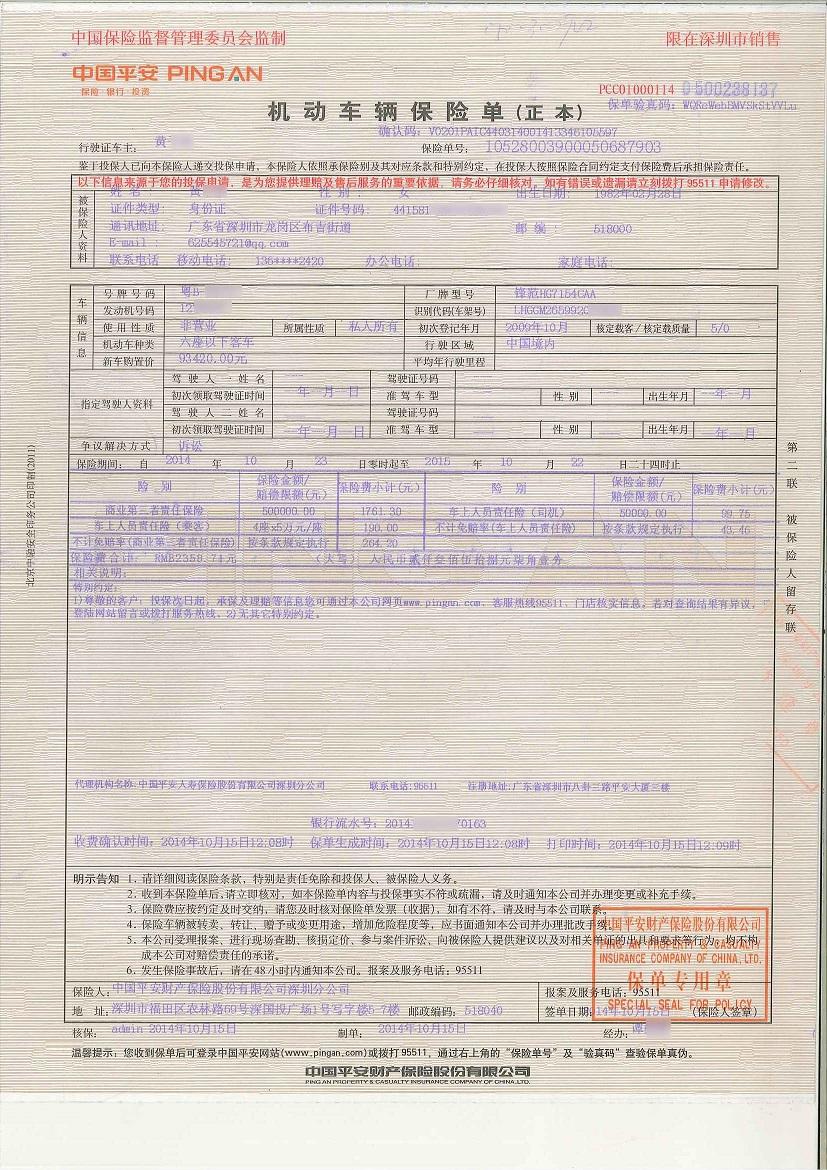 中国保险监督管理委员会监制 限在深圳市销售
中国平安 PING AN
保险·银行·投资
PCC01000114 0500238137
机动车辆保险单(正本) 保单验真码: WQReWebBMVSkStVVLu
确认码: V0201PAIC440314001413346105597
行驶证车主: 黄 保险单号: 10528003900050687903
鉴于投保人已向本保险人递交投保申请，本保险人依照承保险别及其对应条款和特别约定，在投保人按照保险合同约定支付保险费后承担保险责任。
以下信息来源于您的投保申请，是为您提供理赔及售后服务的重要依据，请务必仔细核对。如有错误或遗漏请立刻拨打95511申请修改。
被保险人资料
姓名: 黄 性别: 女 出生日期: 1982年02月28日
证件类型: 身份证 证件号码: 441581
通讯地址: 广东省深圳市龙岗区布吉街道 邮编: 518000
E-mail: 625545721@qq.com
联系电话 移动电话: 136****2420 办公电话: 家庭电话:
车辆信息
号牌号码 粤B- 厂牌型号 锋范HG7154CAA
发动机号码 12 识别代码(车架号) LHGGM265992C
使用性质 非营业 所属性质 私人所有 初次登记年月 2009年10月 核定载客/核定载质量 5/0
机动车种类 六座以下客车 行驶区域 中国境内
新车购置价 93420.00元 平均年行驶里程
指定驾驶人资料
驾驶人一姓名 --- 驾驶证号码 ---
初次领取驾驶证时间 --年--月--日 准驾车型 性别 出生年月 --年--月
驾驶人二姓名 --- 驾驶证号码 ---
初次领取驾驶证时间 --年--月--日 准驾车型 --- 性别 出生年月 --年--月
争议解决方式 诉讼
保险期间: 自 2014 年 10 月 23 日零时起至 2015 年 10 月 22 日二十四时止
险别 保险金额/赔偿限额(元) 保险费小计(元) 险别 保险金额/赔偿限额(元) 保险费小计(元)
商业第三者责任保险 500000.00 1761.30 车上人员责任险(司机) 50000.00 99.75
车上人员责任险(乘客) 4座x5万元/座 190.00 不计免赔率(车上人员责任险) 按条款规定执行 43.46
不计免赔率(商业第三者责任保险) 按条款规定执行 264.20
保险费合计: RMB2358.71元 (大写) 人民币贰仟叁佰伍拾捌元柒角壹分
相关说明:
特别约定:
1)尊敬的客户: 投保次日起, 承保及理赔等信息您可通过本公司网页www.pingan.com、客服热线95511、门店核实信息。若对查询结果有异议,
登陆网站留言或拨打服务热线。2)无其它特别约定。
代理机构名称:中国平安人寿保险股份有限公司深圳分公司 联系电话:95511 注册地址:广东省深圳市八卦三路平安大厦三楼
银行流水号: 2014 70163
收费确认时间: 2014年10月15日12:08时 保单生成时间: 2014年10月15日12:08时 打印时间: 2014年10月15日12:09时
明示告知 1. 请详细阅读保险条款，特别是责任免除和投保人、被保险人义务。
2. 收到本保险单后,请立即核对，如本保险单内容与投保事实不符或疏漏，请及时通知本公司并办理变更或补充手续。
3. 保险费应按约定及时交纳，请您及时核对保险单发票（收据），如有不符，请及时与本公司联系。
4. 保险车辆被转卖、转让、赠予或变更用途，增加危险程度等，应书面通知本公司并办理批改手续。
5. 本公司受理报案、进行现场查勘、核损定价、参与案件诉讼、向被保险人提供建议以及对相关单证的出具和要求等行为，均不构
成本公司对赔偿责任的承诺。
6. 发生保险事故后，请在48小时内通知本公司。报案及服务电话: 95511
中国平安财产保险股份有限公司
PING AN PROPERTY & CASUALTY
INSURANCE COMPANY OF CHINA, LTD.
保单专用章
SPECIAL SEAL FOR POLICY
保险人: 中国平安财产保险股份有限公司深圳分公司 报案及服务电话: 95511
地 址: 深圳市福田区农林路69号深国投广场1号写字楼5-7楼 邮政编码: 518040 签单日期: 14年10月15日 (保险人签章)
核保: admin 2014年10月15日 制单: 2014年10月15日 经办: 谭
温馨提示: 您收到保单后可登录中国平安网站(www.pingan.com)或拨打95511，通过右上角的“保险单号”及“验真码”查验保单真伪。
中国平安财产保险股份有限公司
PING AN PROPERTY & CASUALTY INSURANCE COMPANY OF CHINA, LTD.
第二联 被保险人留存联